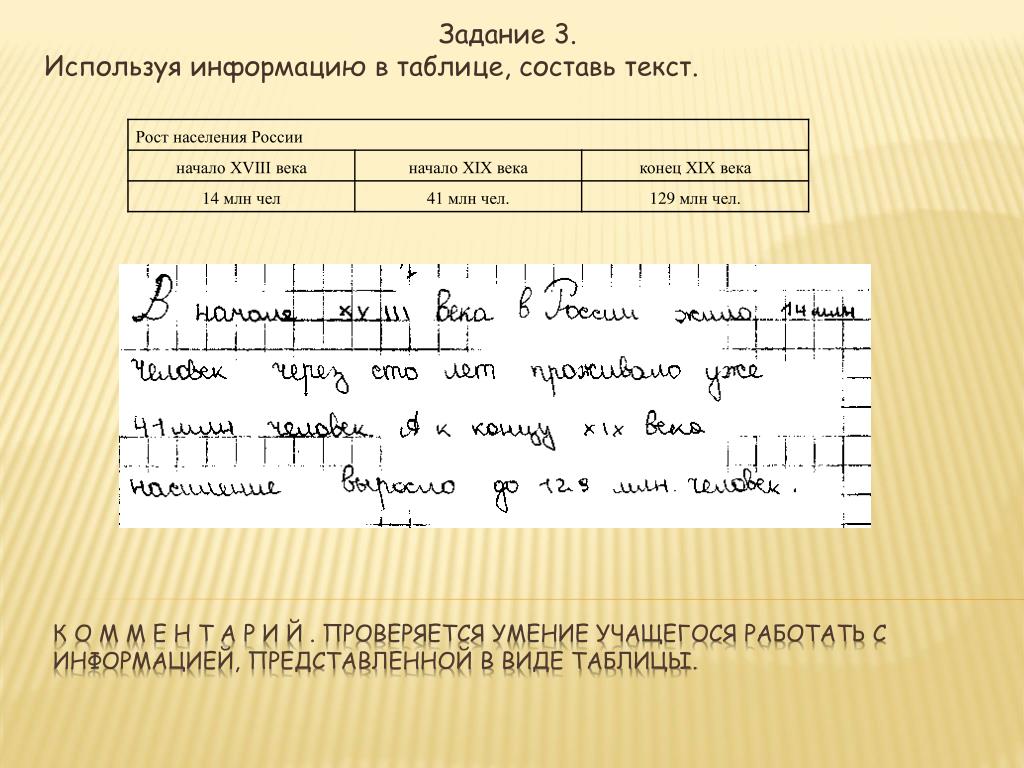 Задание 3.
Используя информацию в таблице, составь текст.
Рост населения России
начало XVIII века начало XIX века конец XIX века
14 млн чел 41 млн чел. 129 млн чел.
В начале XVIII века в России жило 14 млн
человек через сто лет проживало уже
41 млн человек А к концу XIX века
население выросло до 129 млн. человек.
К О М М Е Н Т А Р И Й . ПРОВЕРЯЕТСЯ УМЕНИЕ УЧАЩЕГОСЯ РАБОТАТЬ С
ИНФОРМАЦИЕЙ, ПРЕДСТАВЛЕННОЙ В ВИДЕ ТАБЛИЦЫ.